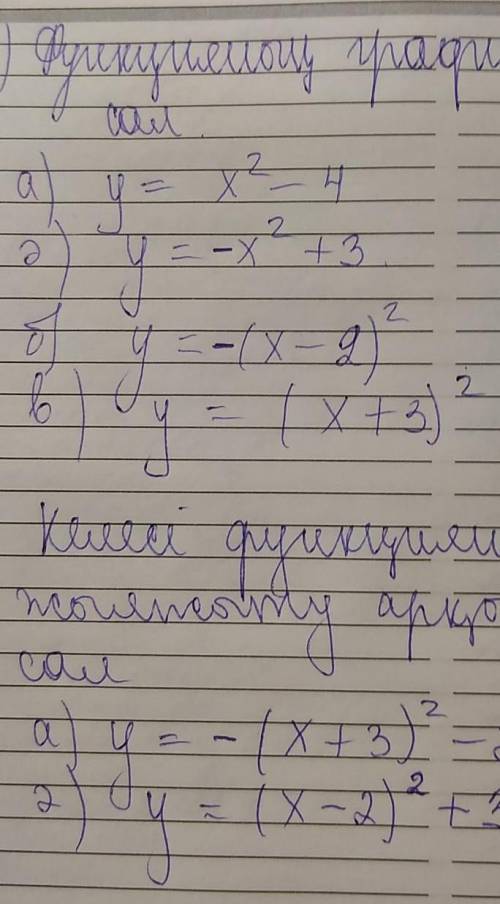 ) Функцияның графи
сал.
а) y = x² - 4
ә) y = -x² + 3.
б) y = -(x - 2)²
в) y = (x + 3)²
Келесі функцияли
жылжыту арқо
сал
а) y = -(x + 3)² -
ә) y = (x - 2)² + 3